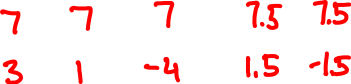 7 7 7 7.5 7.5
3 1 -4 1.5 -1.5